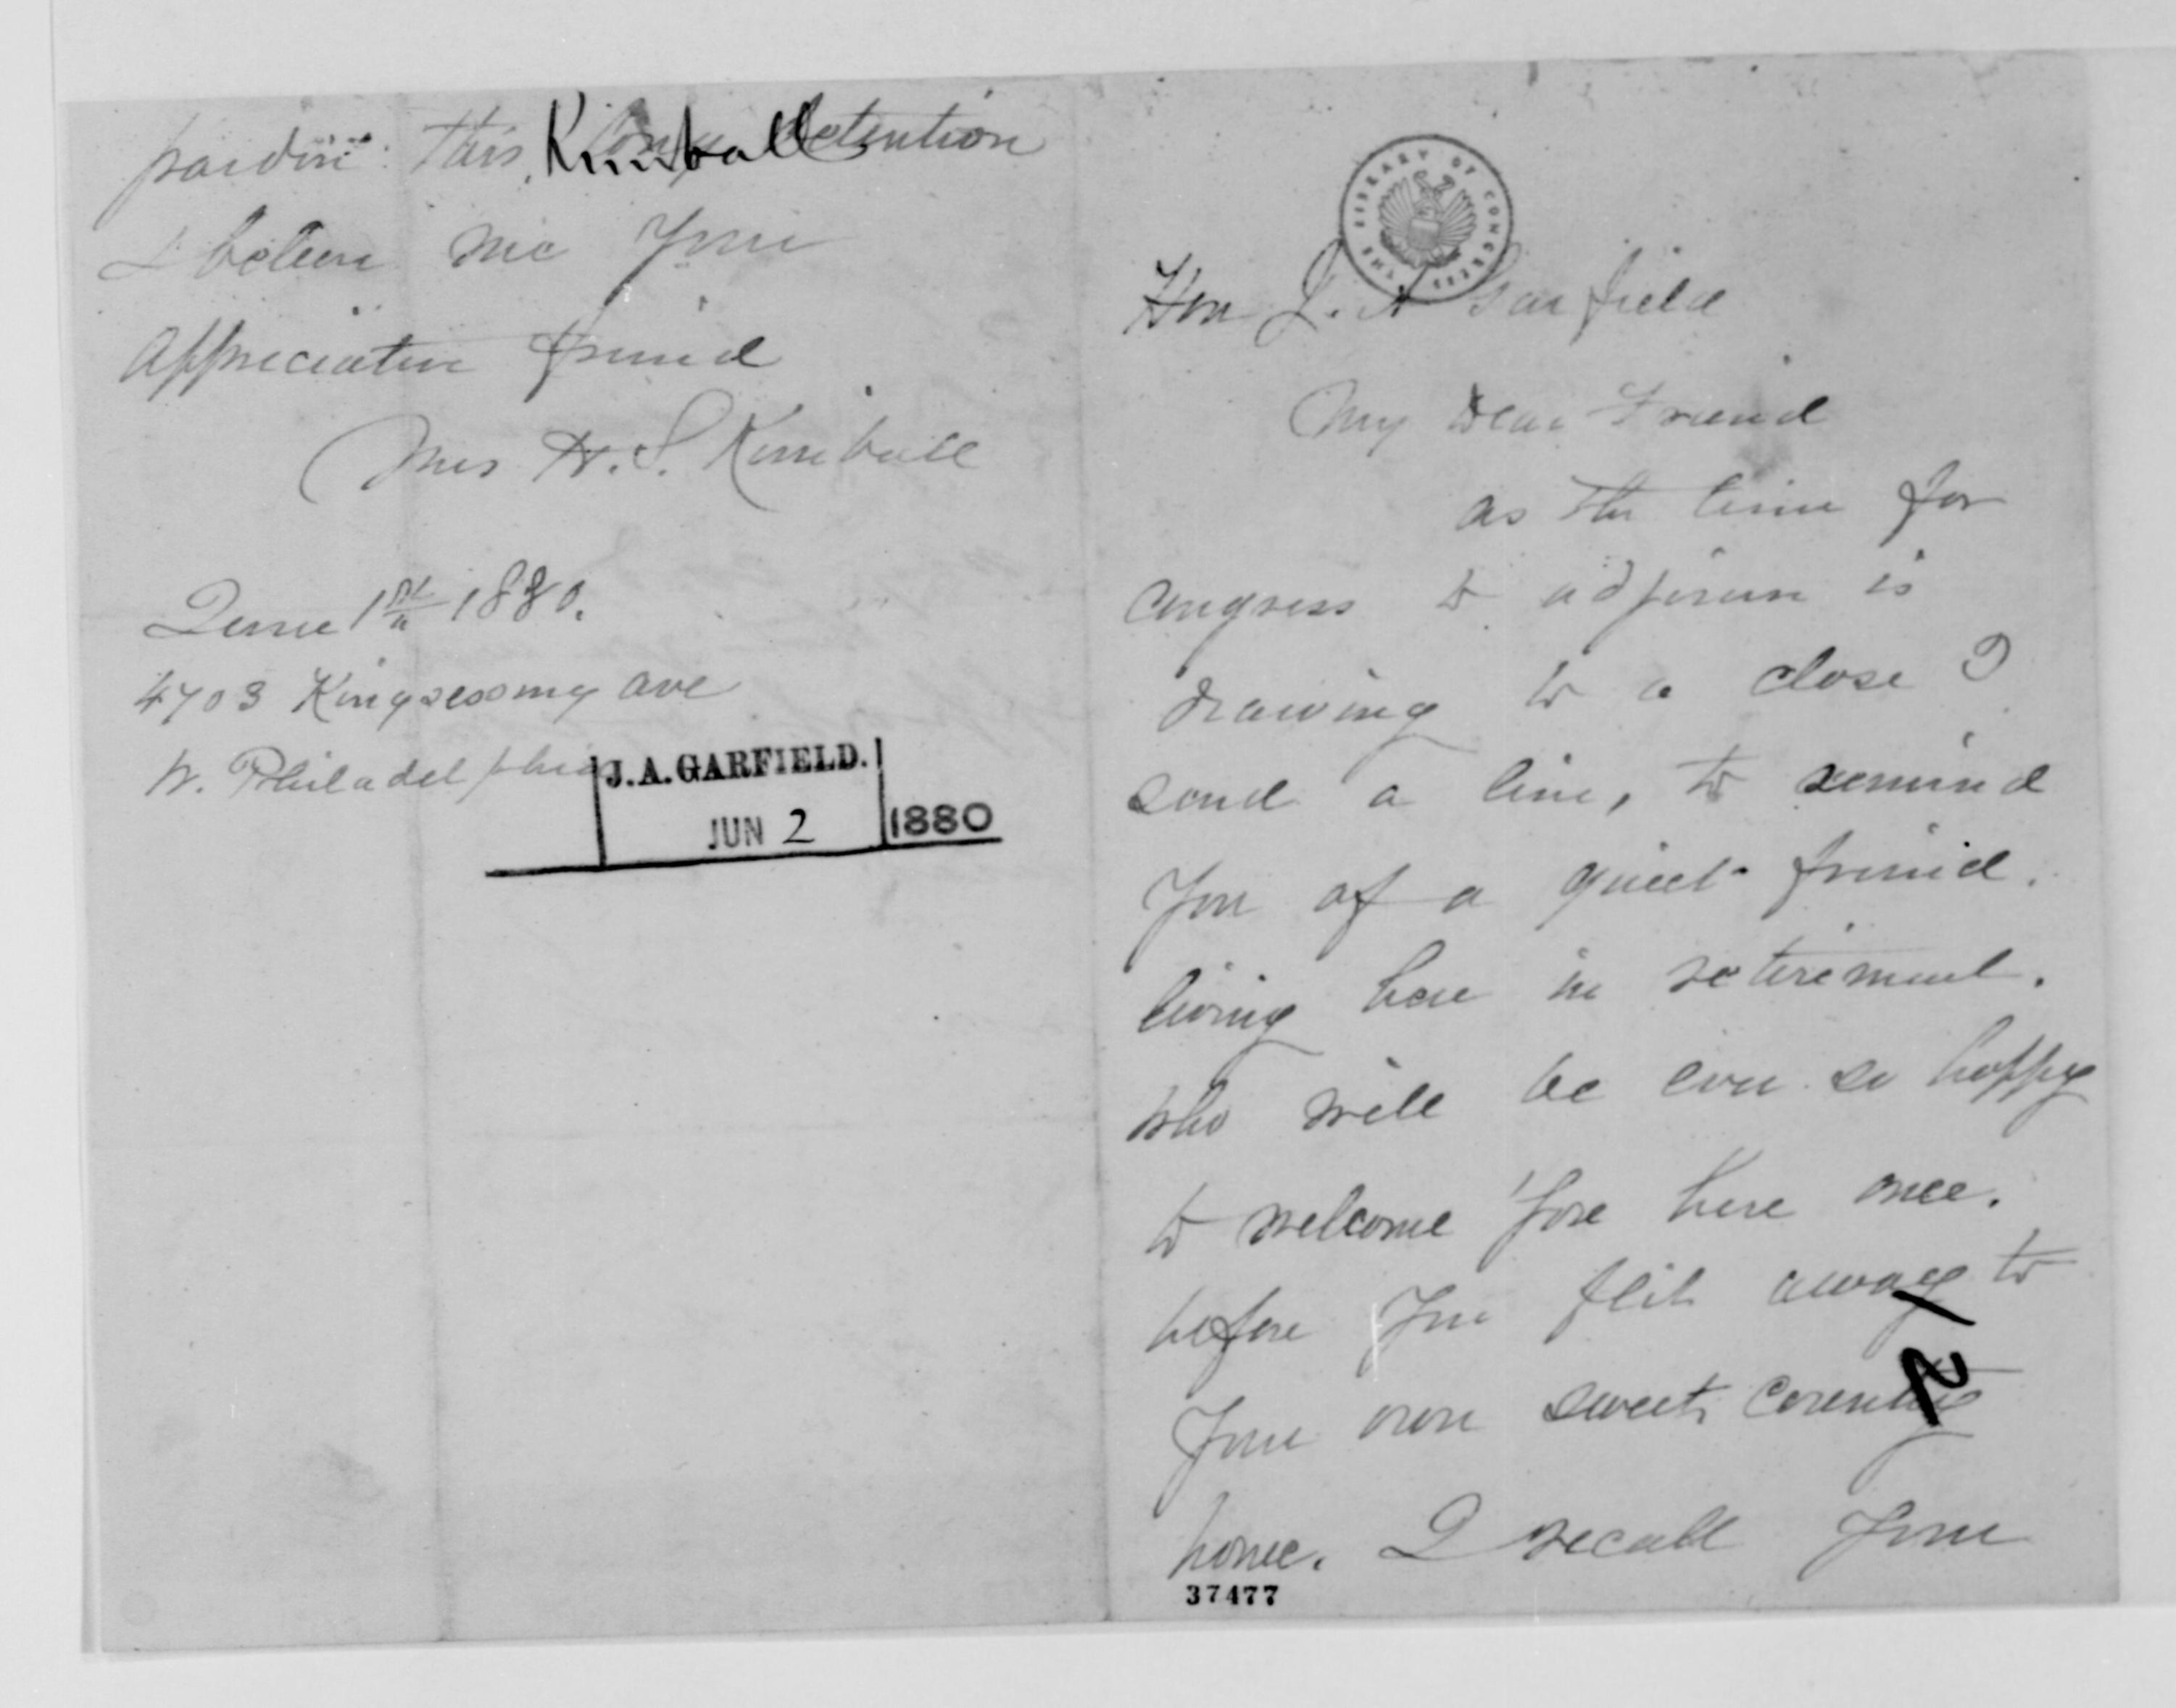 pardon this long detention
Kimball
& believe me Your
Appreciative friend
Mrs H. S. Kimball
June 1st 1880.
4703 Kingsessing ave
W. Philadelphia
J. A. GARFIELD.
JUN 2 1880
THE LIBRARY OF CONGRESS
Hon J. A Garfield
My Dear Friend
as the time for
Congress to adjourn is
drawing to a close I
send a line, to remind
You of a quiet friend.
living here in retirement.
who will be ever so happy
to welcome You here once.
before You flit away to
Your own sweet, country
home. I recall Your
37477